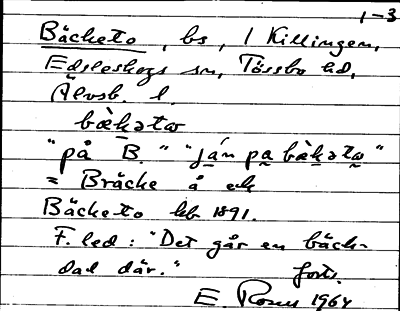 1-3
Bäcketo, bs, / Killingen,
Edsleskogs sn, Tössbo hd,
Älvsb. l.
bæ̀kətω
"på B." "ján pa bæ̀kətω"
= Bräcke å ek
Bäcketo hb 1891.
F. led: "Det går en bäck-
dal där."
forts.
E. 1964